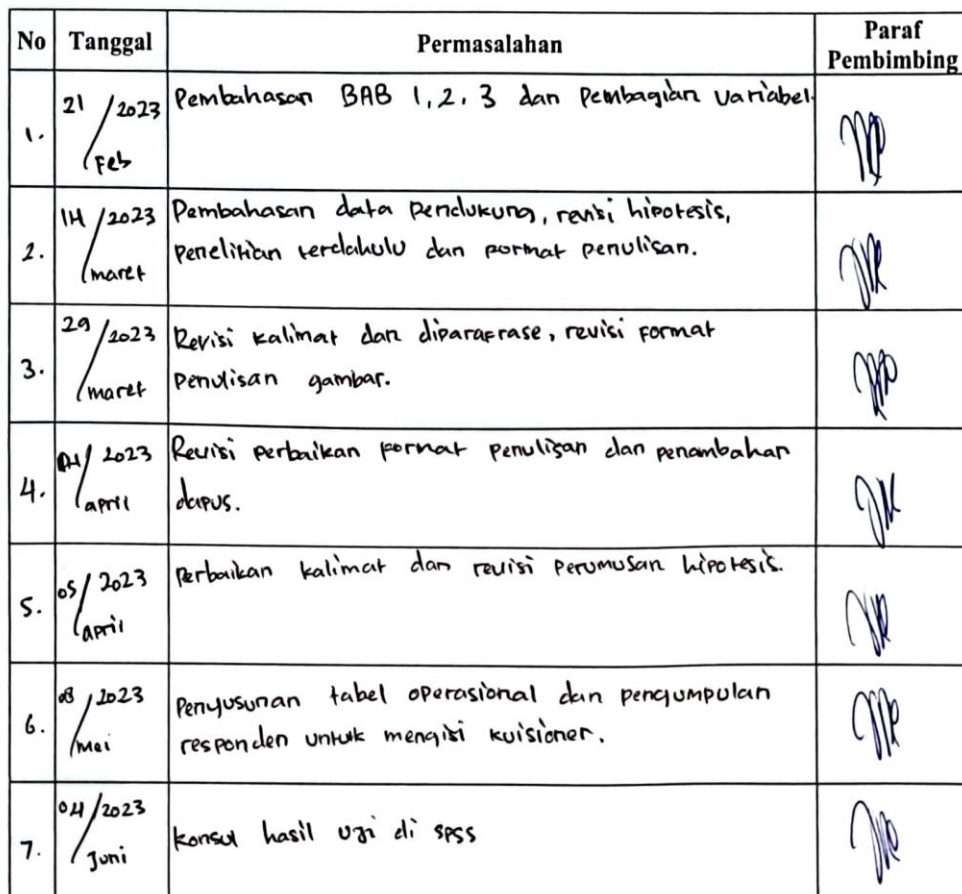 No Tanggal Permasalahan Paraf Pembimbing
1. 21/2023 Feb Pembahasan BAB 1, 2, 3 dan Pembagian Variabel.
2. 14/2023 maret Pembahasan data Pendukung, revisi hipotesis,
penelitian terdahulu dan format penulisan.
3. 29/2023 maret Revisi kalimat dan diparafrase, revisi format
Penulisan gambar.
4. 04/2023 april Revisi perbaikan format penulisan dan penambahan
dapus.
5. 05/2023 april Perbaikan kalimat dan revisi Perumusan hipotesis.
6. 08/2023 mei Penyusunan tabel operasional dan pengumpulan
responden untuk mengisi kuisioner.
7. 04/2023 Juni konsul hasil uji di spss